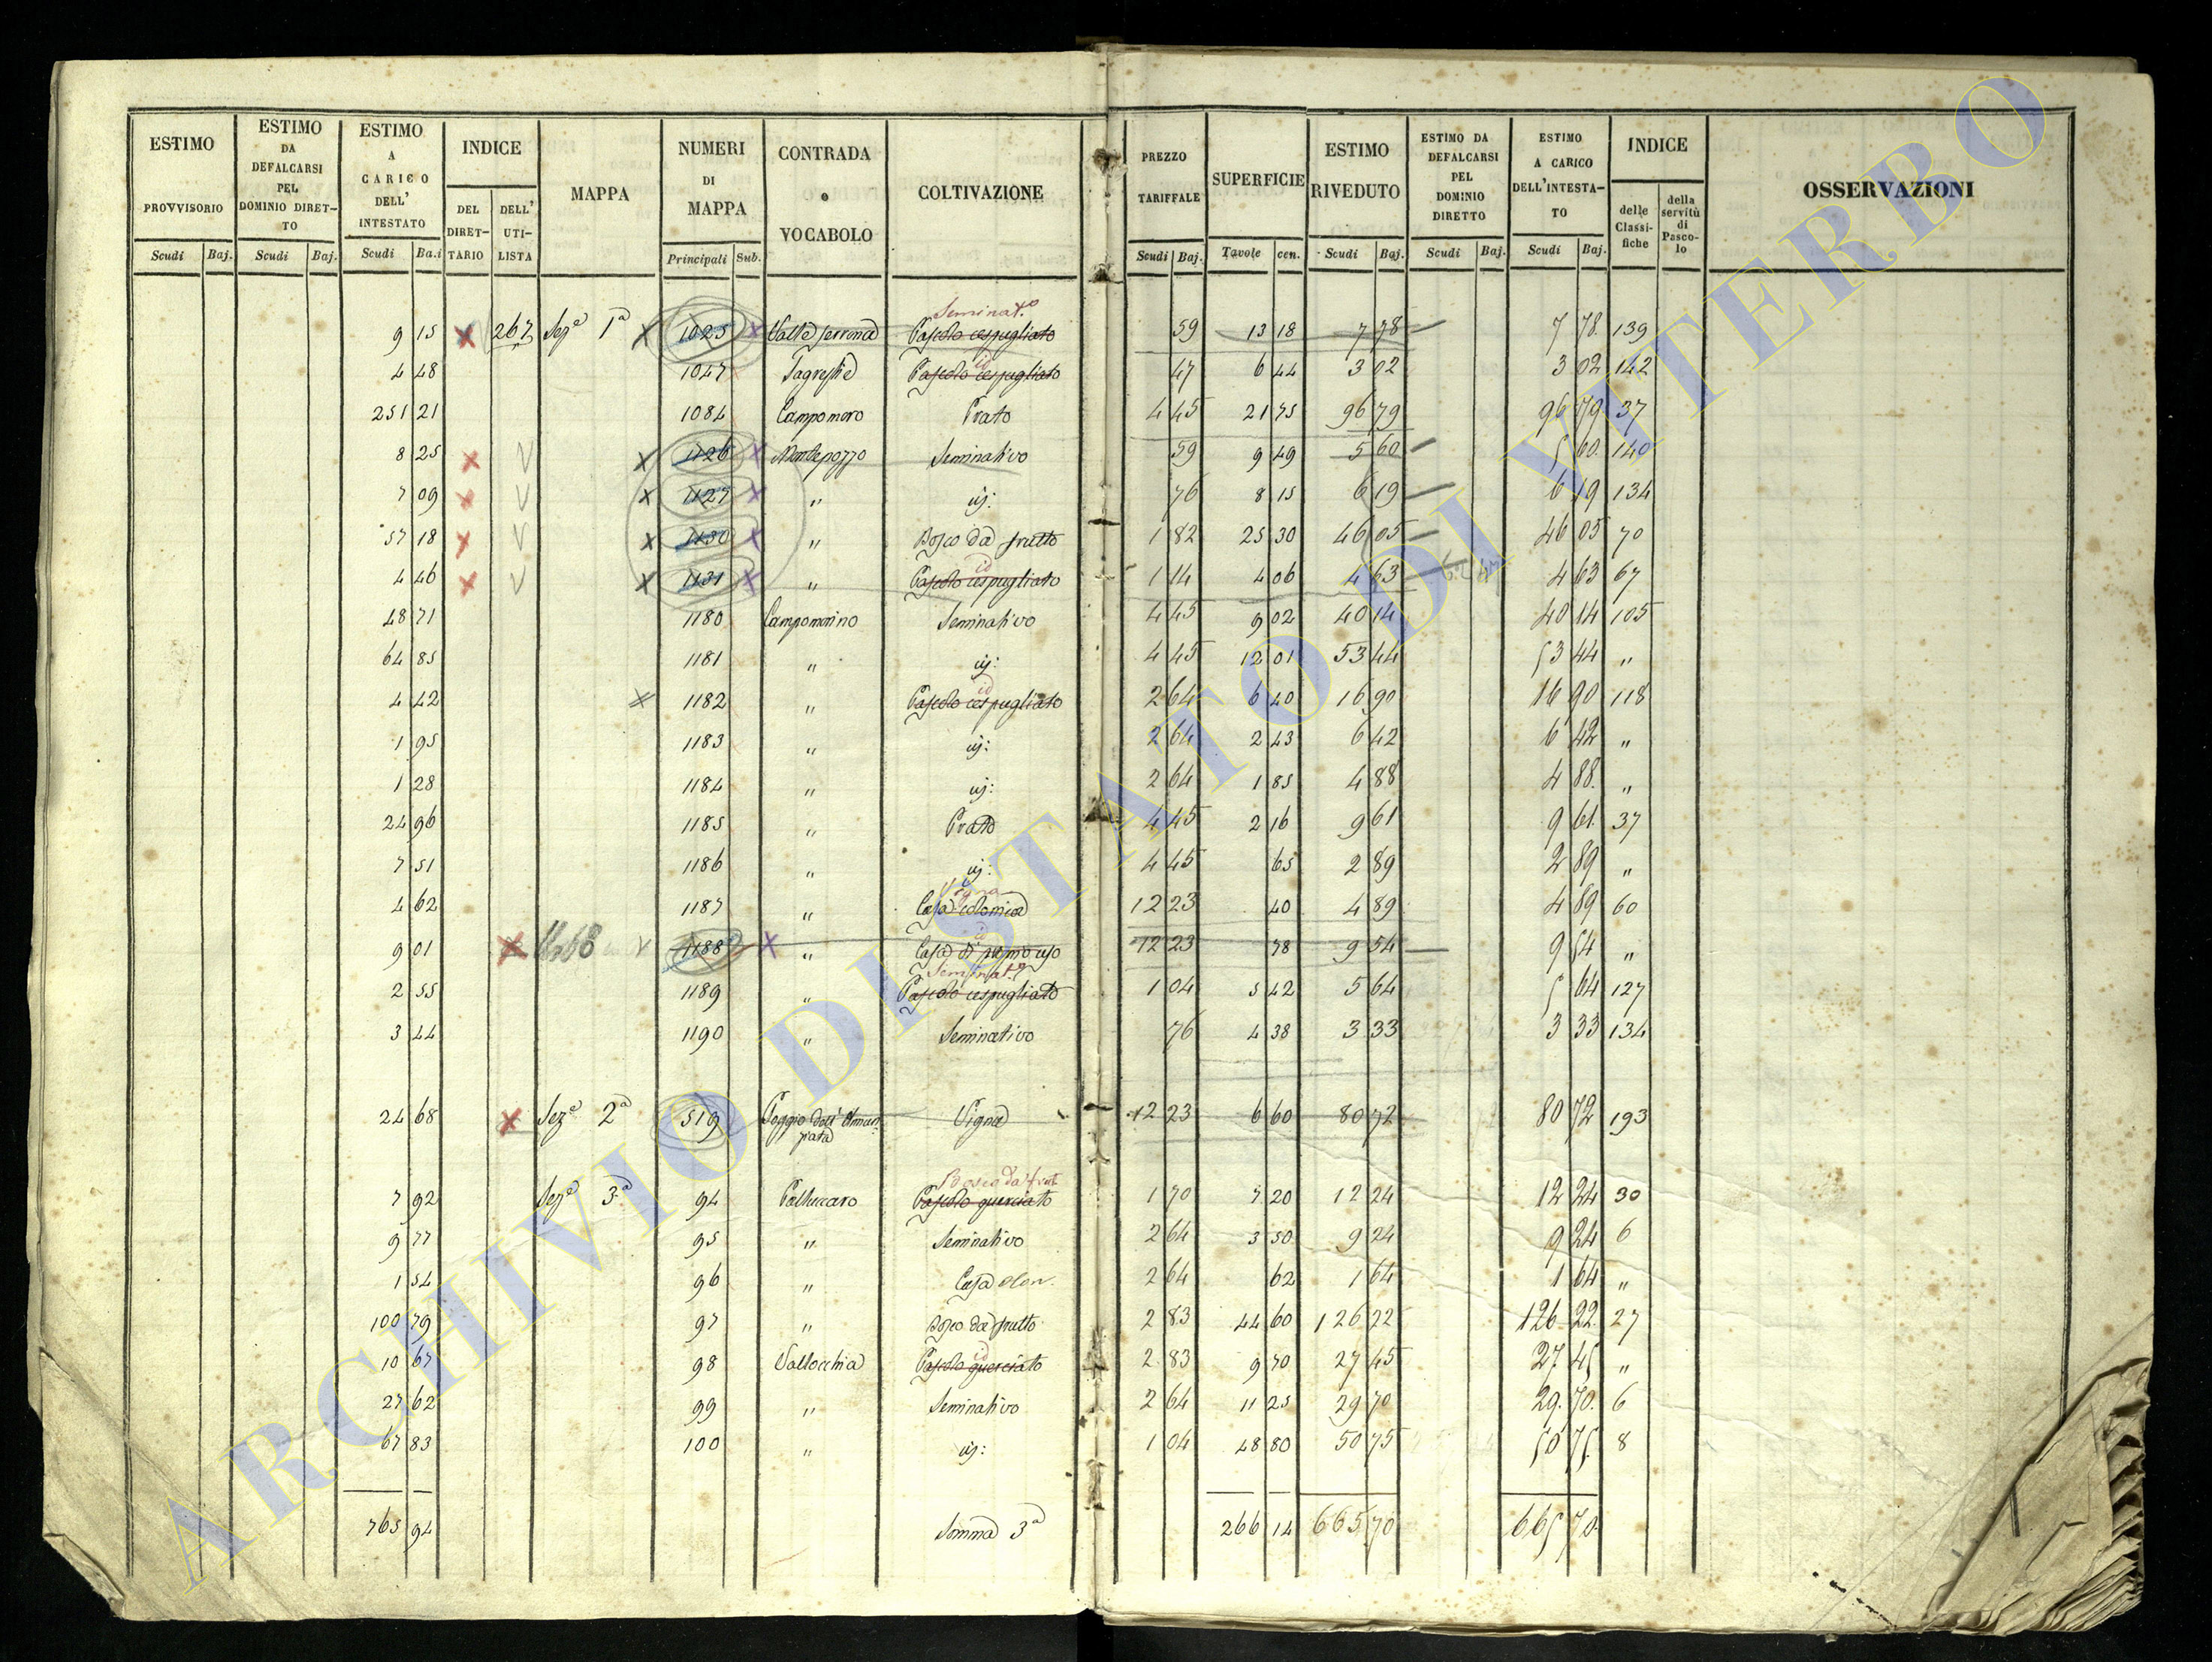 ESTIMO PROVVISORIO Scudi Baj.
ESTIMO DA DEFALCARSI PEL DOMINIO DIRET-TO Scudi Baj.
ESTIMO A CARICO DELL' INTESTATO Scudi Ba.i
INDICE DEL DIRET-TARIO DELL' UTI-LISTA
MAPPA
NUMERI DI MAPPA Principali Sub.
CONTRADA o VOCABOLO
COLTIVAZIONE
PREZZO TARIFFALE Scudi Baj.
SUPERFICIE Tavole cen.
ESTIMO RIVEDUTO Scudi Baj.
ESTIMO DA DEFALCARSI PEL DOMINIO DIRETTO Scudi Baj.
ESTIMO A CARICO DELL'INTESTA-TO Scudi Baj.
INDICE delle Classi-fiche della servitù di Pasco-lo
OSSERVAZIONI
Seminat.o
9 15 267 Sez.e 1a 1025 Pascolo cespugliato 59 13 18 7 78 7 78. 139
id
4 48 1047 Pascolo cespugliato 47 6 44 3 02 3 02 142
251 21 1084 Campomoro Prato 4 45 21 75 96 79 96 79. 37
8 25 1126 Montepozzo Seminativo 59 9 49 5 60 5 60. 140
7 09 1127 " id: 76 8 15 6 19 6 19 134
57 18 1130 " Bosco da frutto 1 82 25 30 46 05 46 05 70
id
4 46 1131 " Pascolo cespugliato 1 14 4 06 4 63 4 63 67
48 71 1180 Campomorino Seminativo 4 45 9 02 40 14 40 14 105
64 85 1181 " id: 4 45 12 01 53 44 53 44 "
id
4 42 1182 " Pascolo cespugliato 2 64 6 40 16 90 16 90 118
1 95 1183 " id: 2 64 2 43 6 42 6 42 "
1 28 1184 " id: 2 64 1 85 4 88 4 88. "
24 96 1185 " Prato 4 45 2 16 9 61 9 61. 37
7 51 1186 " id: 4 45 65 2 89 2 89 "
Vigna
4 62 1187 " Casa colonica 12 23 40 4 89 4 89 60
id
9 01 1188 " Casa di proprio uso 12 23 78 9 54 9 54 "
Seminat.o
2 55 1189 " Pascolo cespugliato 1 04 5 42 5 64 5 64 127
3 44 1190 " Seminativo 76 4 38 3 33 3 33 134
24 68 Sez.e 2a 519 Poggio dell' Annun-
ziata Vigna 12 23 6 60 80 72 80 72 193
Bosco da frut.
7 92 Sez.e 3.a 94 Palluccaro Pascolo querciato 1 70 7 20 12 24 12 24 30
9 77 95 " Seminativo 2 64 3 50 9 24 9 24 6
1 54 96 " Casa colon. 2 64 62 1 64 1 64 "
100 79 97 " Bosco da frutto 2 83 44 60 126 22 126. 22. 27
id
10 67 98 Vallocchia Pascolo querciato 2 83 9 70 27 45 27 45 "
27 62 99 " Seminativo 2 64 11 25 29 70 29. 70. 6
67 83 100 " id: 1 04 48 80 50 75 50 75. 8
765 94 Somma 3a 266 14 665 70 665 70.
ARCHIVIO DI STATO DI VITERBO